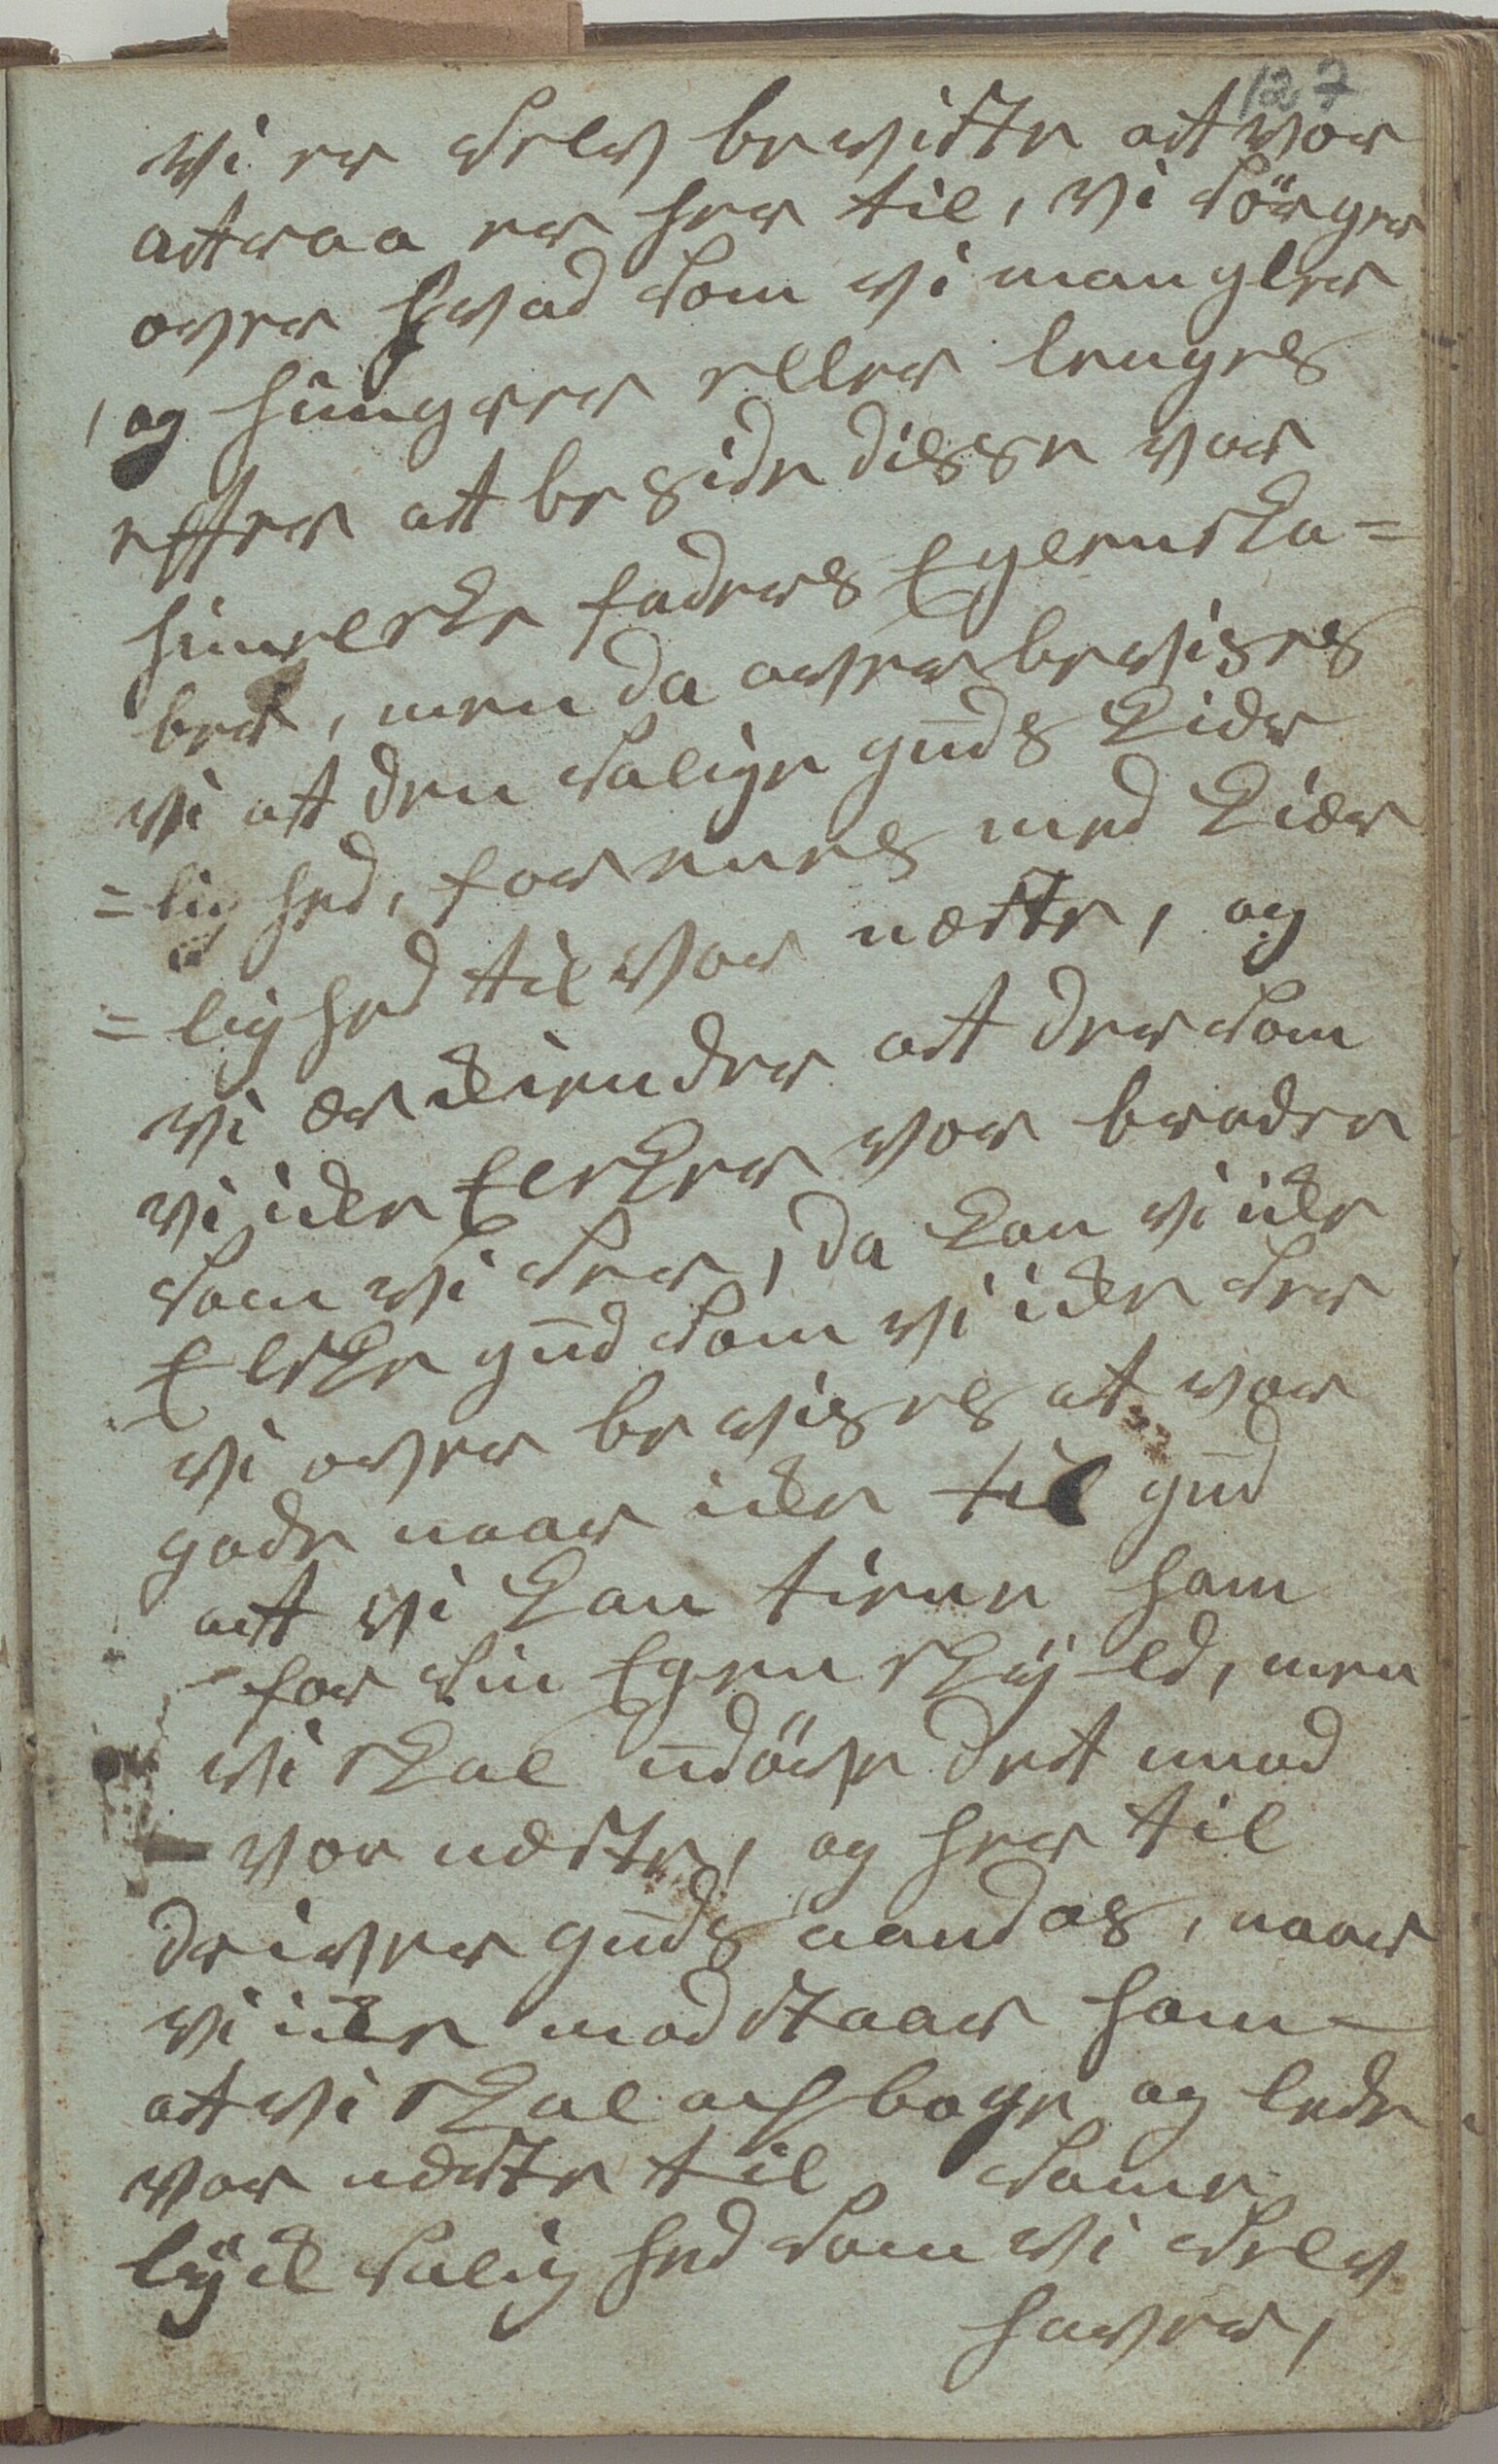 127
vi er selv beviste at vor
attraa er her til, vi sörger
over hvad som vi mangler
og hungrer eller lenges
effter at beside disse vor
himelske faders Egenska=
ber, men da overbevises
vi at den salige guds Kier
=lig hed, forenes med Kier
=lighed til vor næste, og
vi erkiender at der som
vi icke Elsker vor broder
som vi ser, da kan vi icke
Elske gud som vi icke ser
vi over bevises at vor
gode naar icke til gud
at vi kan tiene ham
for sin Egen skyld, men
vi skal udöve det mod
vor næste, og her til
driver guds aand os, naar
vi icke modstaar ham
at vi skal og bage og lede
vor næste til same
lyck salig hed som vi selv
haver,